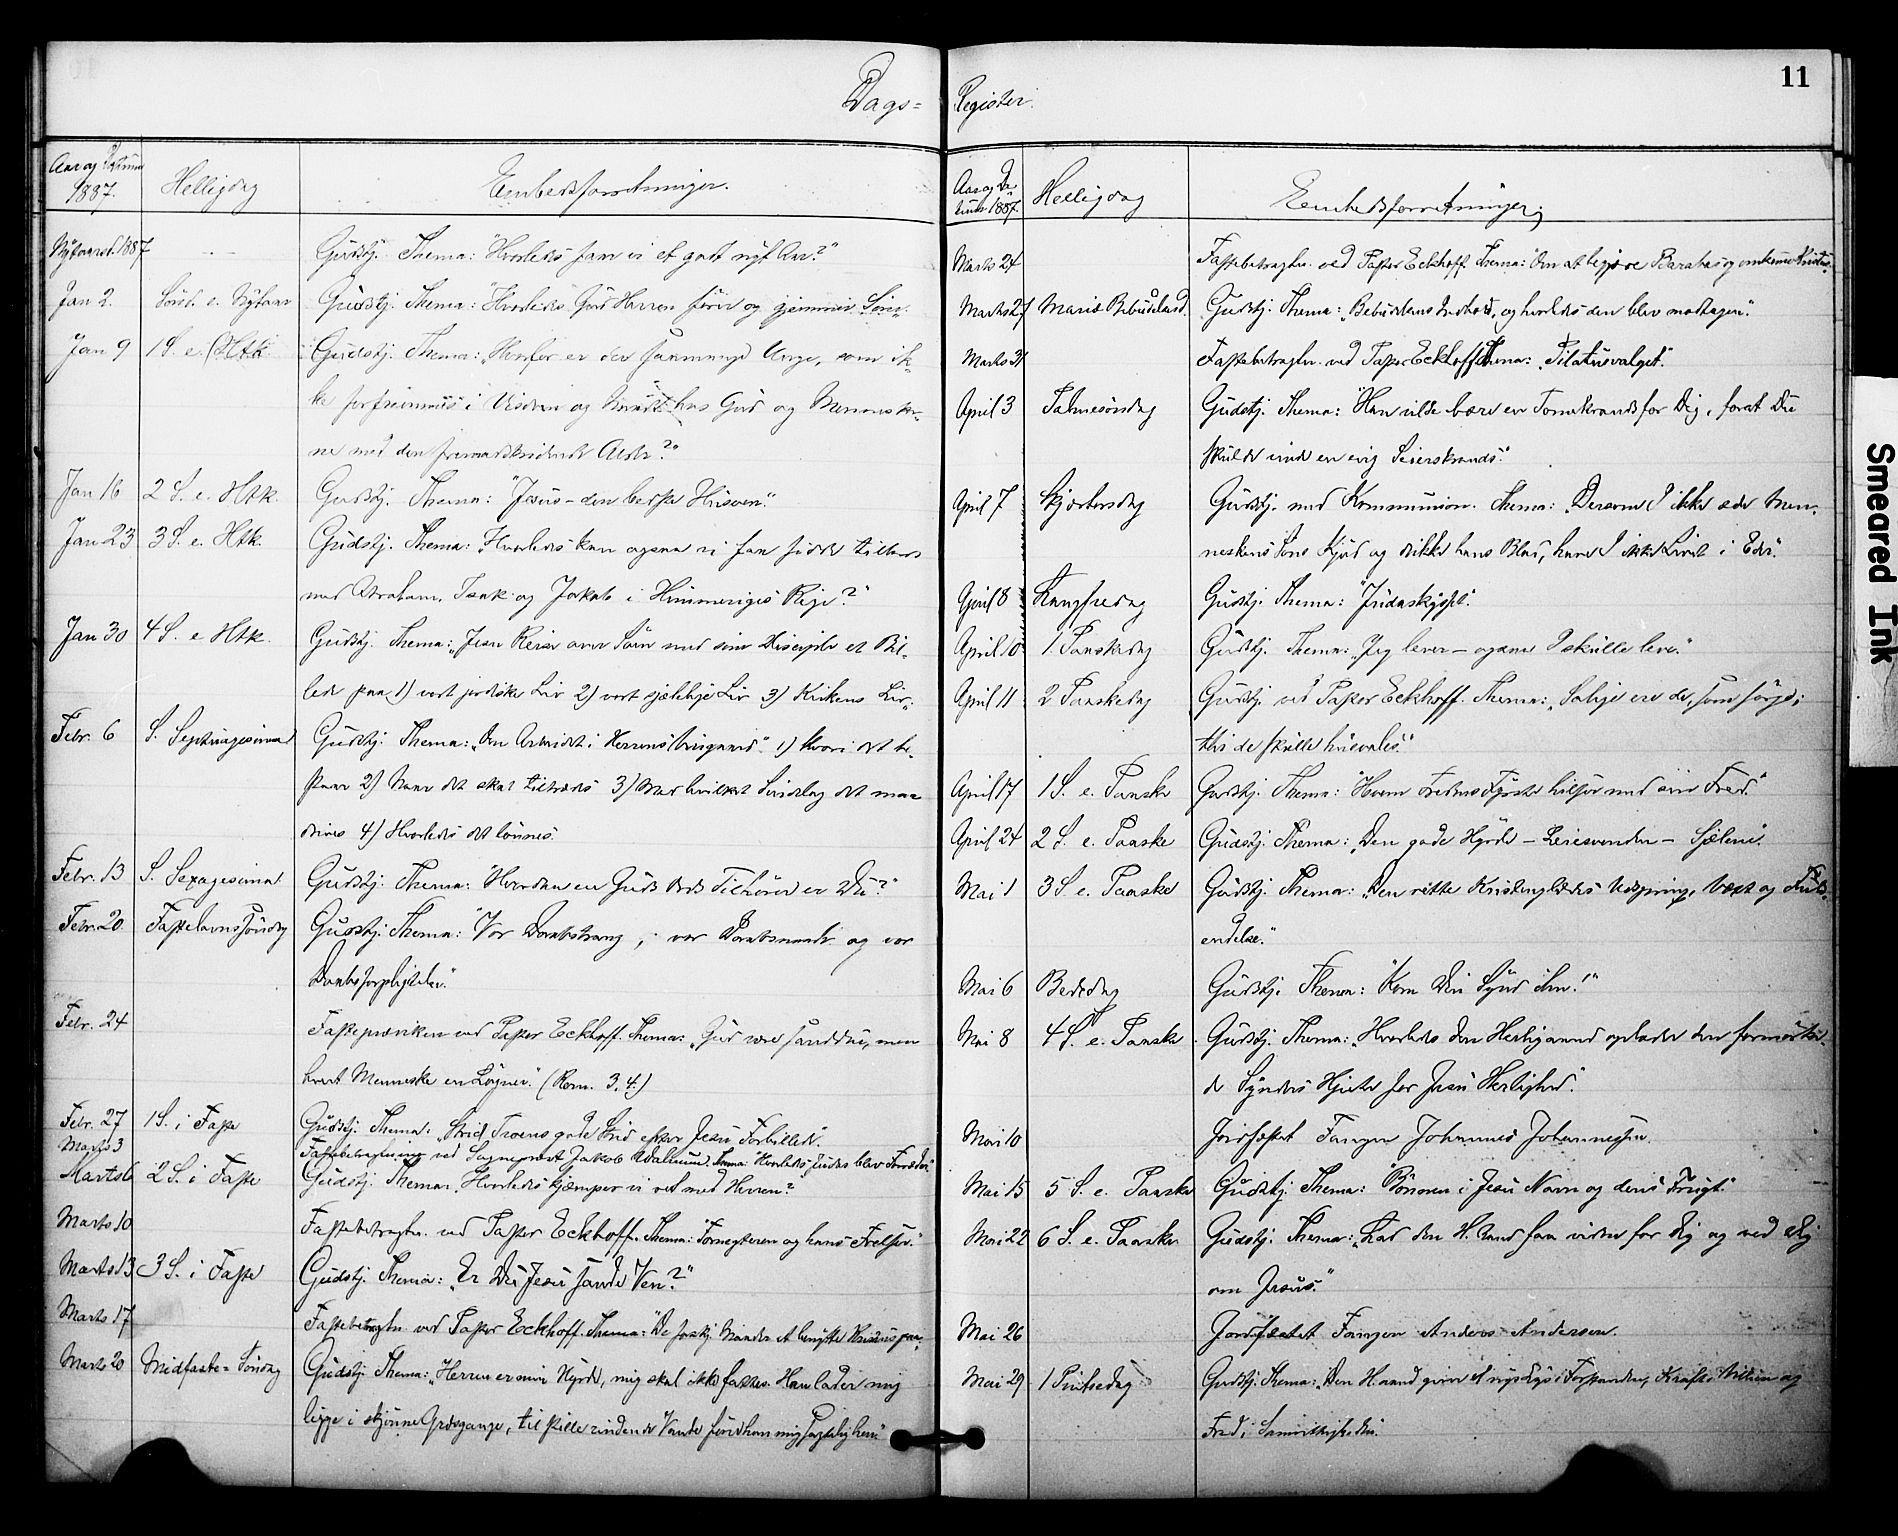 Dags- Register.
11
Aar og Datum 1887. Helligdag Embedsforretninger.
Nytaarsd. 1887 Gudstj. Thema: "Hvorledes faar vi et godt nyt Aar?"
Jan 2. Sønd. e. Nytaar Gudstj. Thema: "Hvorledes Gud Herren fører og gjemmer Sine".
Jan 9 1 S. e. HtK Gudstj. Thema: "Hvorfor er der saamange Unge, som ik-
ke forfremmes i Visdom og Naade hos Gud og Mennesker-
ne med den fremadskridende Alder?"
Jan 16 2 S. e. HtK. Gudstj. Thema: "Jesus - den bedste Husven."
Jan 23 3 S. e. Htk. Gudstj. Thema: "Hvorledes kan ogsaa vi faa sidde tilbords
med Abraham, Isak og Jakob i Himmeriges Rige?"
Jan 30 4 S. e. Htk. Gudstj. Thema: "Jesu Reise over Søen med sine Disciple et Bil-
lede paa 1) vort jordiske Liv 2) vort sjælelige Liv 3) Kirkens Liv".
Febr. 6 S. Septuagesima Gudstj. Thema: "Om Arbeidet i Herrens Viingaard" 1) Hvori det be-
staar 2) Naar det skal tiltrædes 3) Med hvilket Sindelag det maa
drives 4) Hvorledes det lønnes.
Febr. 13 S. Sexagesima Gudstj. Thema: "Hvordan en Guds Ords Tilhører er Du?"
Febr. 20 Fastelavnssøndag Gudstj. Thema: "Vor Daabstrang, vor Daabsnaade og vor
Daabsforpligtelse".
Febr. 24 Fasteprædiken ved Pastor Eckhoff. Thema: "Gud være sanddru, men
hvert Menneske en Løgner". (Rom. 3, 4.)
Febr. 27 1 S. i Faste Gudstj. Thema: "Strid Troens gode Strid efter Jesu Forbillede".
Marts 3 Fastebetragtning ved Sogneprest Jakob Walnum. Thema: "Hvorledes Judas blev Forræder"
Marts 6 2 S. i Faste Gudstj. Thema: "Hvorledes kjæmper vi ret med Herren?"
Marts 10 Fastebetragtn. ved Pastor Eckhoff. Thema: "Fornegteren og hans Frelser."
Marts 13 3 S. i Faste Gudstj. Thema: "Er Du Jesu sande Ven?"
Marts 17 Fastebetragtn. ved Pastor Eckhoff. Thema: "De forskj. Maader at benytte Kristus paa".
Marts 20 Midfaste-Søndag Gudstj. Thema: "Herren er min Hyrde, mig skal intet fattes. Han lader mig
ligge i skjønne Græsgange, til stille rindende Vande fører han mig sagtelig hen".
Aar og Datum 1887. Helligdag Embedsforretninger.
Marts 24 Fastebetragtn. ved Pastor Eckhoff. Thema: "Om at begjære Barabas og omkomme Kristus".
Marts 27 Mariæ Bebudelsesd. Gudstj. Thema: "Bebudelsens Indhold, og hvorledes den blev modtagen".
Marts 31 Fastebetragtn. ved Pastor Eckhoff. Thema: "Pilatusvalget".
April 3 Palmesøndag Gudstj. Thema: "Han vilde bære en Tornekrands for Dig, forat Du
skulde vinde en evig Seierskrands".
April 7 Skjærtorsdag Gudstj. med Kommunion. Thema: "Dersom I ikke æde Men-
neskens Søns Kjød og drikke hans Blod, have I ikke Livet i Eder".
April 8 Langfredag Gudstj. Thema: "Judaskysset".
April 10 1. Paaskedag Gudstj. Thema: "Jeg lever - ogsaa I skulle leve".
April 11 2 Paaskedag Gudstj. ved Pastor Eckhoff. Thema: "Salige ere de, som sørge;
thi de skulle husvales."
April 17 1 S. e. Paaske Gudstj. Thema: "Hvem Fredens Fyrste hilser med sin Fred".
April 24 2 S. e. Paaske Gudstj. Thema: "Den gode Hyrde - Leiesvenden - Sjælene".
Mai 1 3 S. e. Paaske Gudstj. Thema: "Den rette Kristenglædes Udspring, Væxt og Fuld-
endelse."
Mai 6 Bededag Gudstj. Thema: "Kom Din Synd ihu!"
Mai 8 4 S. e. Paaske Gudstj. Thema: "Hvorledes den Helligaand oplader den formørke-
de Synders Hjerte for Jesu Herlighed".
Mai 10 Jordfæstet Fangen Johannes Johannesen.
Mai 15 5 S. e. Paaske Gudstj. Thema: "Bønnen i Jesu Navn og dens Frugt".
Mai 22 6 S. e. Paaske Gudstj. Thema: "Lad den H. Aand faa vidne for Dig og ved Dig
om Jesus."
Mai 26 Jordfæstet Fangen Anders Andersen.
Mai 29 1 Pintsedag Gudstj. Thema: "Den H. aand giver et nyt Lys i Forstanden, Kraft i Viljen og
Fred i Samvittigheden".
Smeared Ink